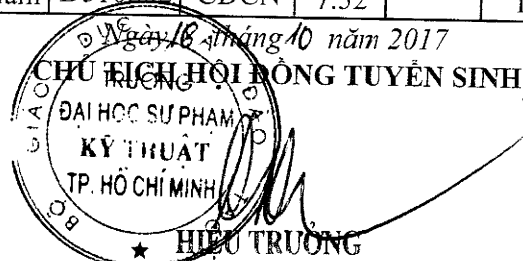 CDCN 7.52
Ngày 18 tháng 10 năm 2017
CHỦ TỊCH HỘI ĐỒNG TUYỂN SINH
BỘ GIÁO DỤC VÀ ĐÀO TẠO
TRƯỜNG
ĐẠI HỌC SƯ PHẠM
KỸ THUẬT
TP. HỒ CHÍ MINH
★
HIỆU TRƯỞNG